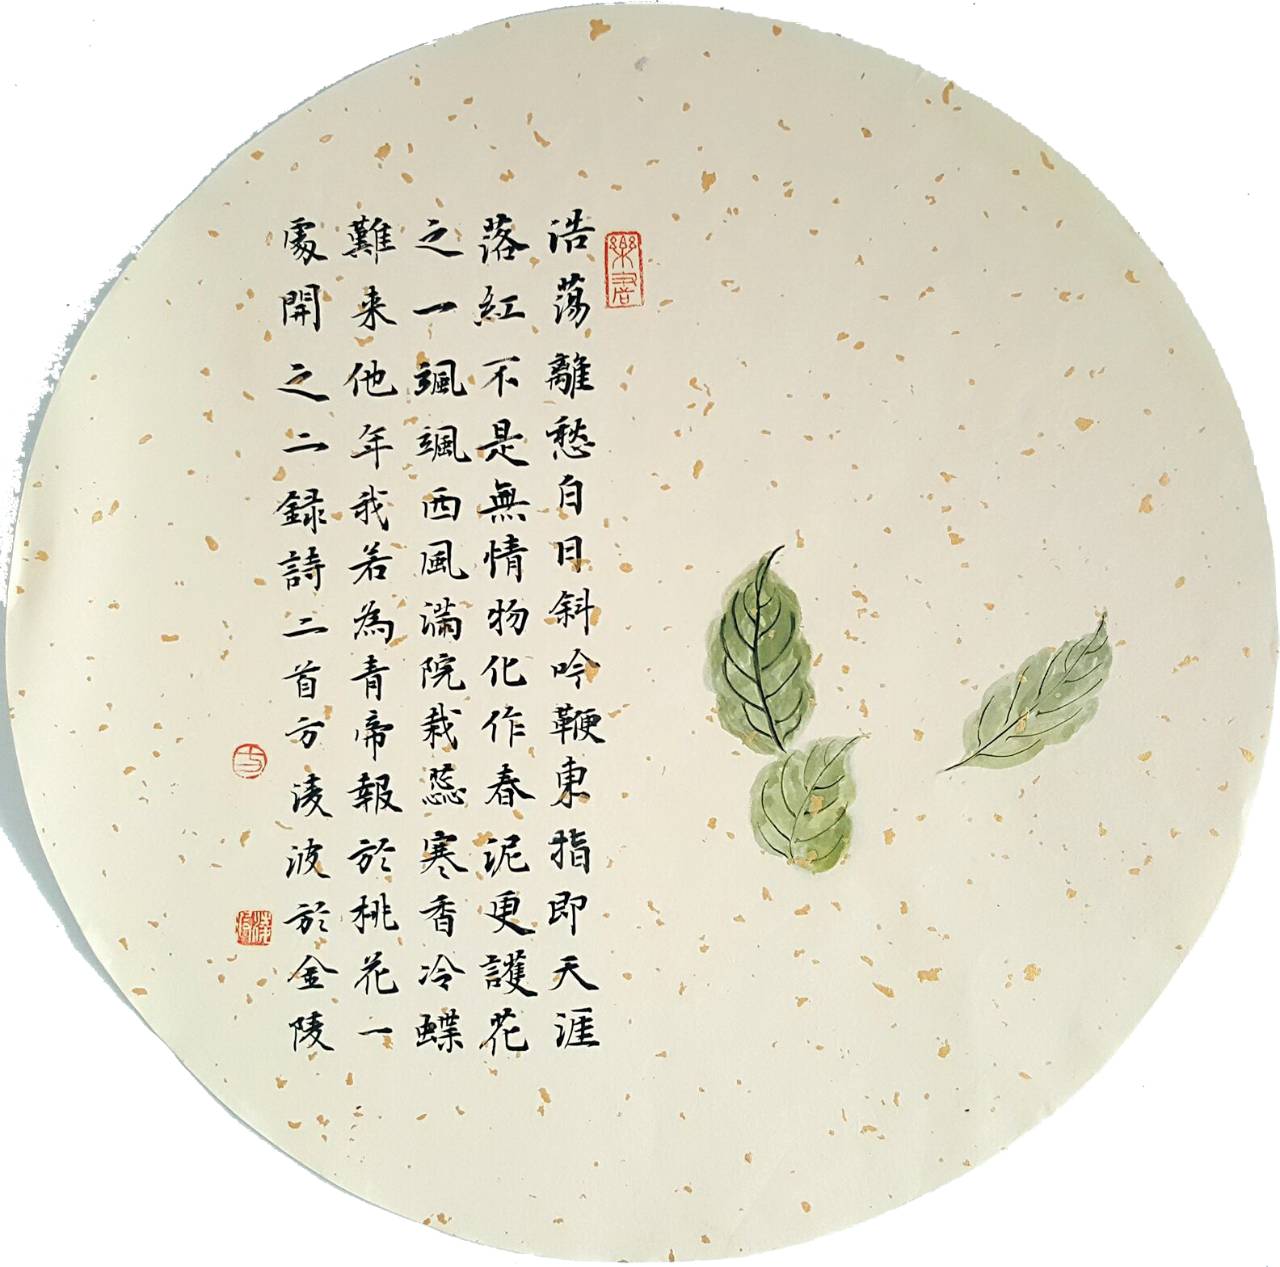 浩荡離愁白日斜吟鞭東指即天涯
落紅不是無情物化作春泥更護花
之一颯颯西風滿院栽蕊寒香冷蝶
難来他年我若為青帝報於桃花一
處開之二録詩二首方淩波於金陵